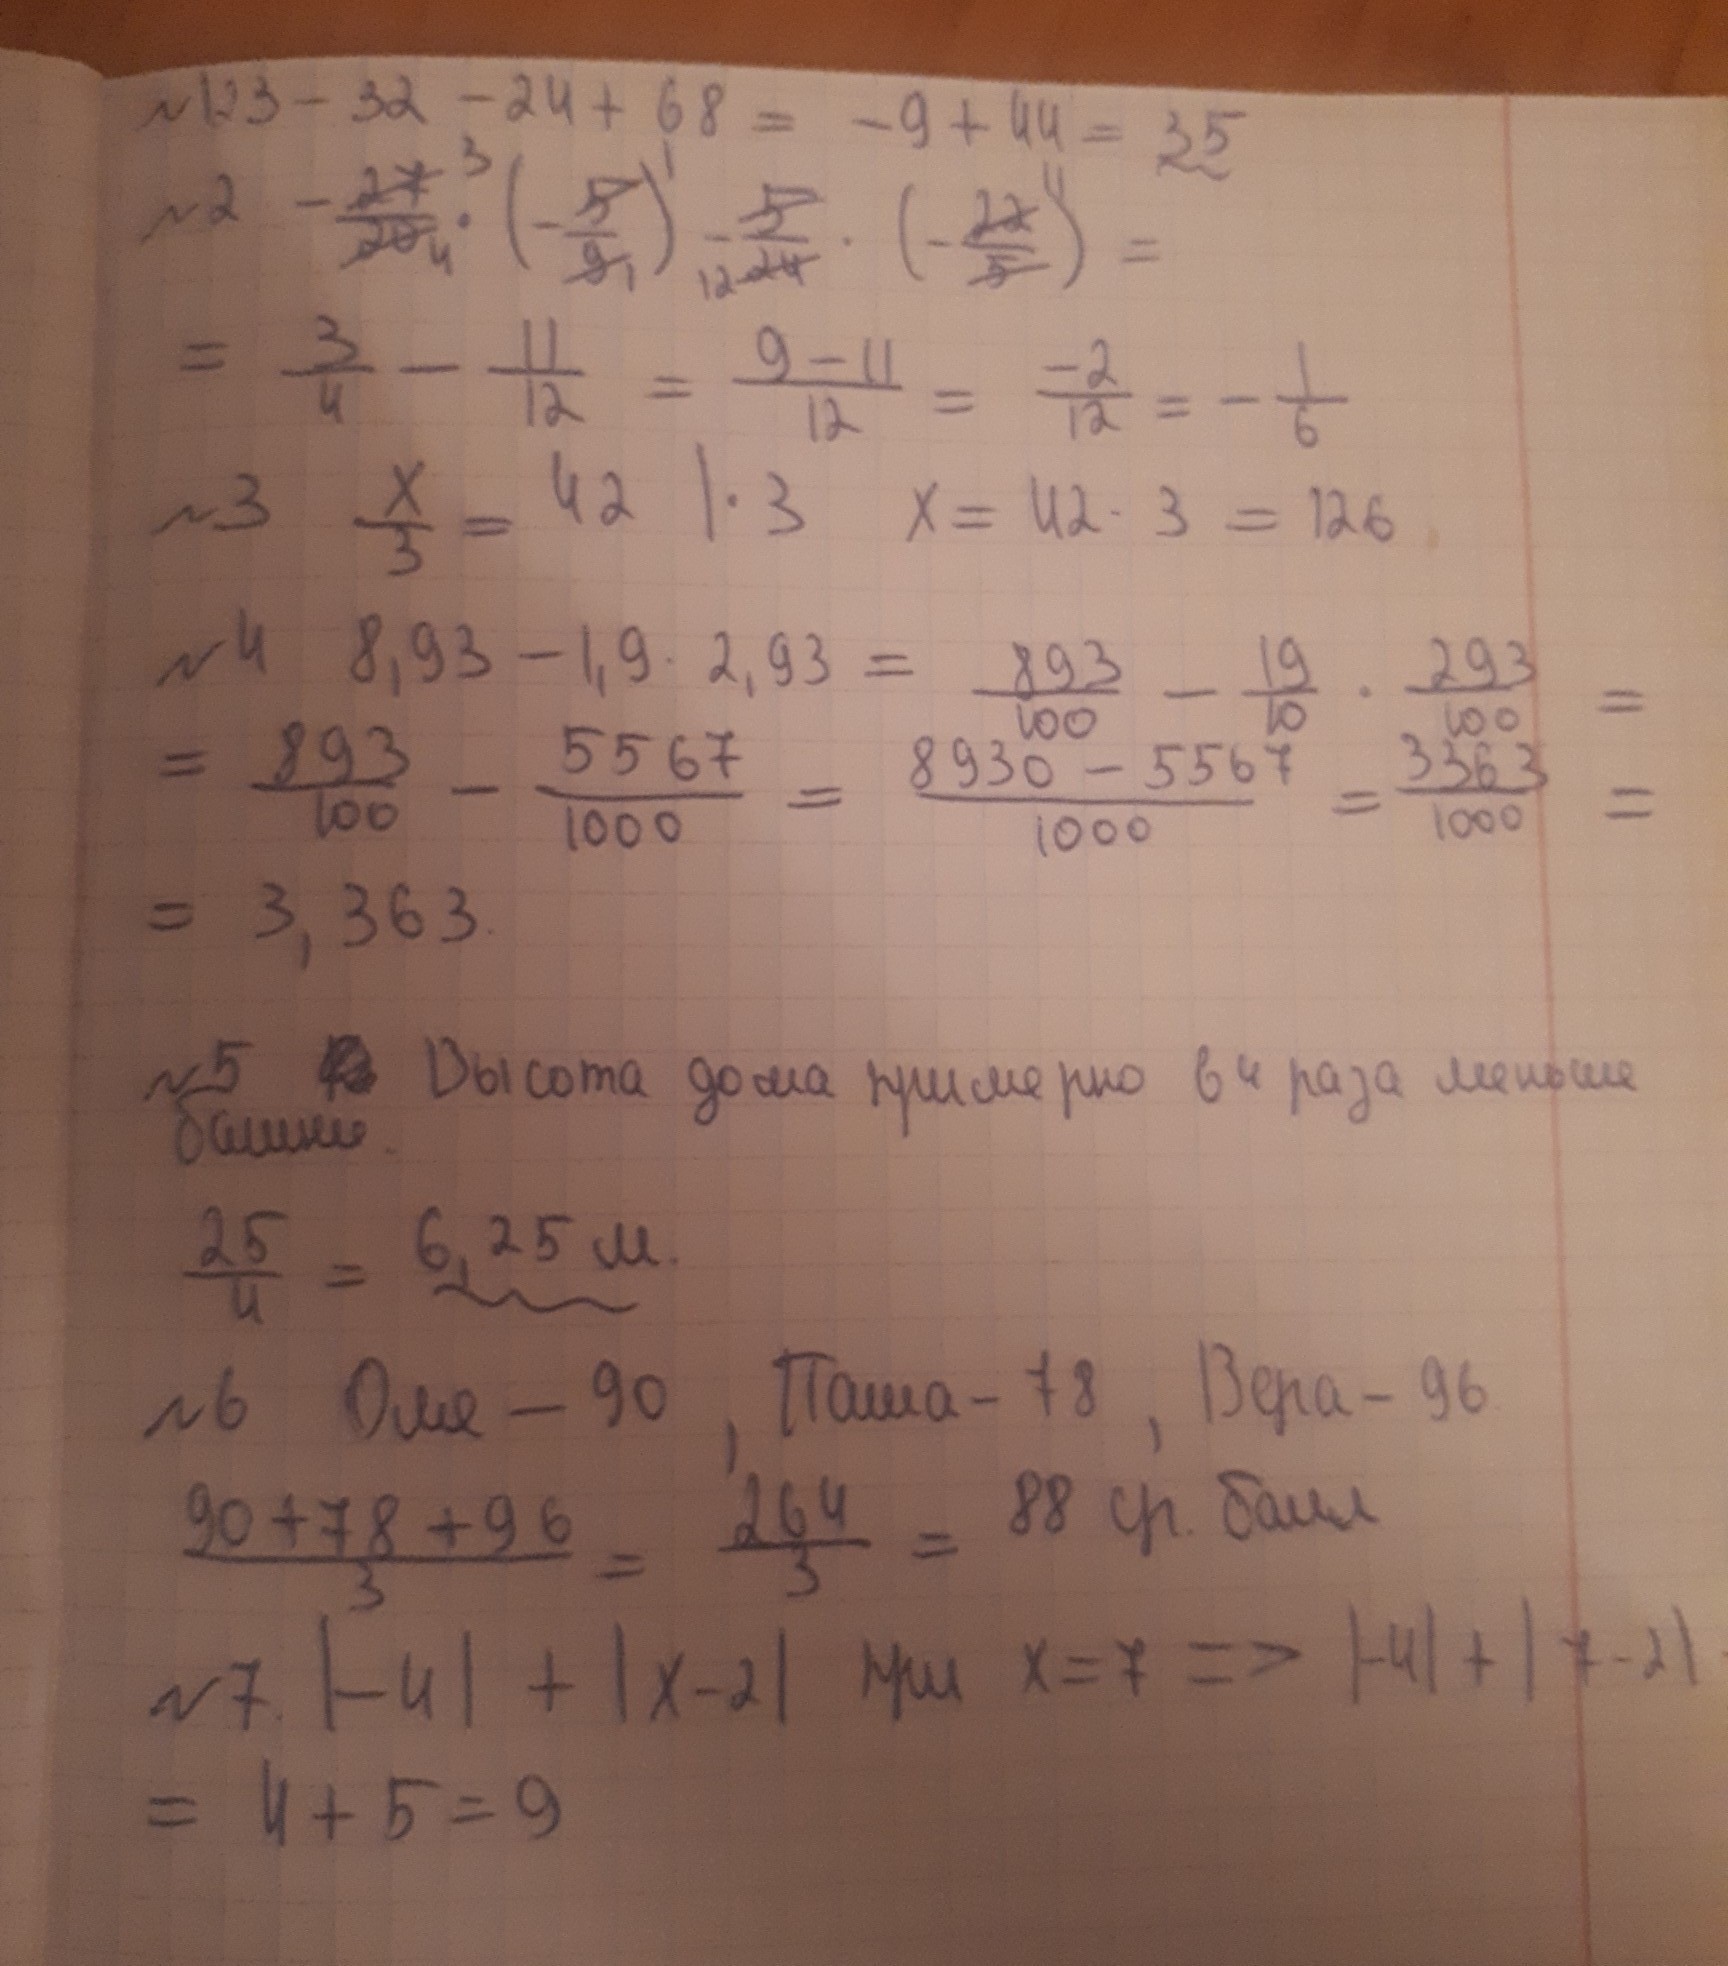 №1 23 - 32 - 24 + 68 = -9 + 44 = 35
№2 - 27/20 · (- 5/9) - 5/24 · (- 22/5) =
= 3/4 - 11/12 = 9 - 11/12 = -2/12 = - 1/6
№3 x/3 = 42 |· 3 x = 42 · 3 = 126
№4 8,93 - 1,9 · 2,93 = 893/100 - 19/10 · 293/100 =
= 893/100 - 5567/1000 = 8930 - 5567/1000 = 3363/1000 =
= 3,363.
№5 Высота дома примерно в 4 раза меньше
башни.
25/4 = 6,25 м.
№6 Оля - 90, Паша - 78, Вера - 96
90 + 78 + 96/3 = 264/3 = 88 ср. балл
№7. |-4| + |x-2| при x = 7 => |-4| + |7-2|
= 4 + 5 = 9